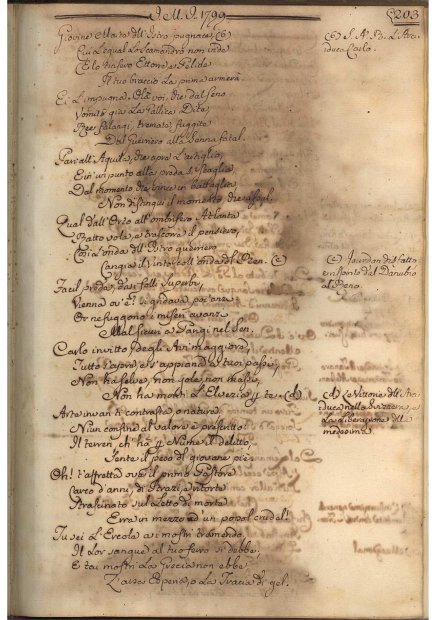 I. M. I. 1799. 203
Giovine Marte dell'Istro pugnace, (b)
Cui l'equal lo Scamandro non vide
Ettore e Pelide
Il tuo braccio la prima armerà.
Ei l'impugna. Olà voi, che dal seno
Vomitò già la Gallica Dite,
Ree falangi, tremate, fuggite
Dal Guerriero alla Senna fatal.
Pari all'Aquila, che apre l'artiglio,
E in un punto alla preda si scaglia,
Dal momento che vince in battaglia,
Non distingui il momento che
Qual dall'Orto all'ombrifero Atlante
Ratto vola, e trascorre il pensiero,
Così l'onda dell'Istro guerriero
Cangia il coll'onda del Reen. (c)
Facil preda, folli superbi,
Vienna ov'è? si gridava poc'anzi
Or ne fuggono i miseri avanzi
Mal sicuri a Parigi nel sen.
Carlo invitto, degli Avi maggiore,
Tutto s'apra, e s'appiani a' tuoi passi,
Non ha selve, non gole, non massi,
Non ha monti l'Elvezia per te. (d)
Arte invan ti contrasta o natura,
Niun confine al valore è prefitto:
Il terren, ch'ha per Nume il delitto,
Sente il peso di giovane piè.
Oh! t'affretta ove il primo Pastore
Carco d'anni, di strazi, e ritorte
Strascinato sul letto di morte
Erra in mezzo ad un popol crudel!
Tu sei l'Ercole a' mostri tremendo,
Il lor sangue al tuo ferro si debbe,
E tai mostri la Grecia non ebbe,
L'arsa Esperia, o la Tracia di gel.
(b) S. A. R. L'Arci-
duca Carlo.
(c) Jourdan disfatto
e vinto dal Danubio
al Reno.
(d) Le Vittorie dell'Arci-
duca nella Svizzera, e
la liberazione della
medesima.